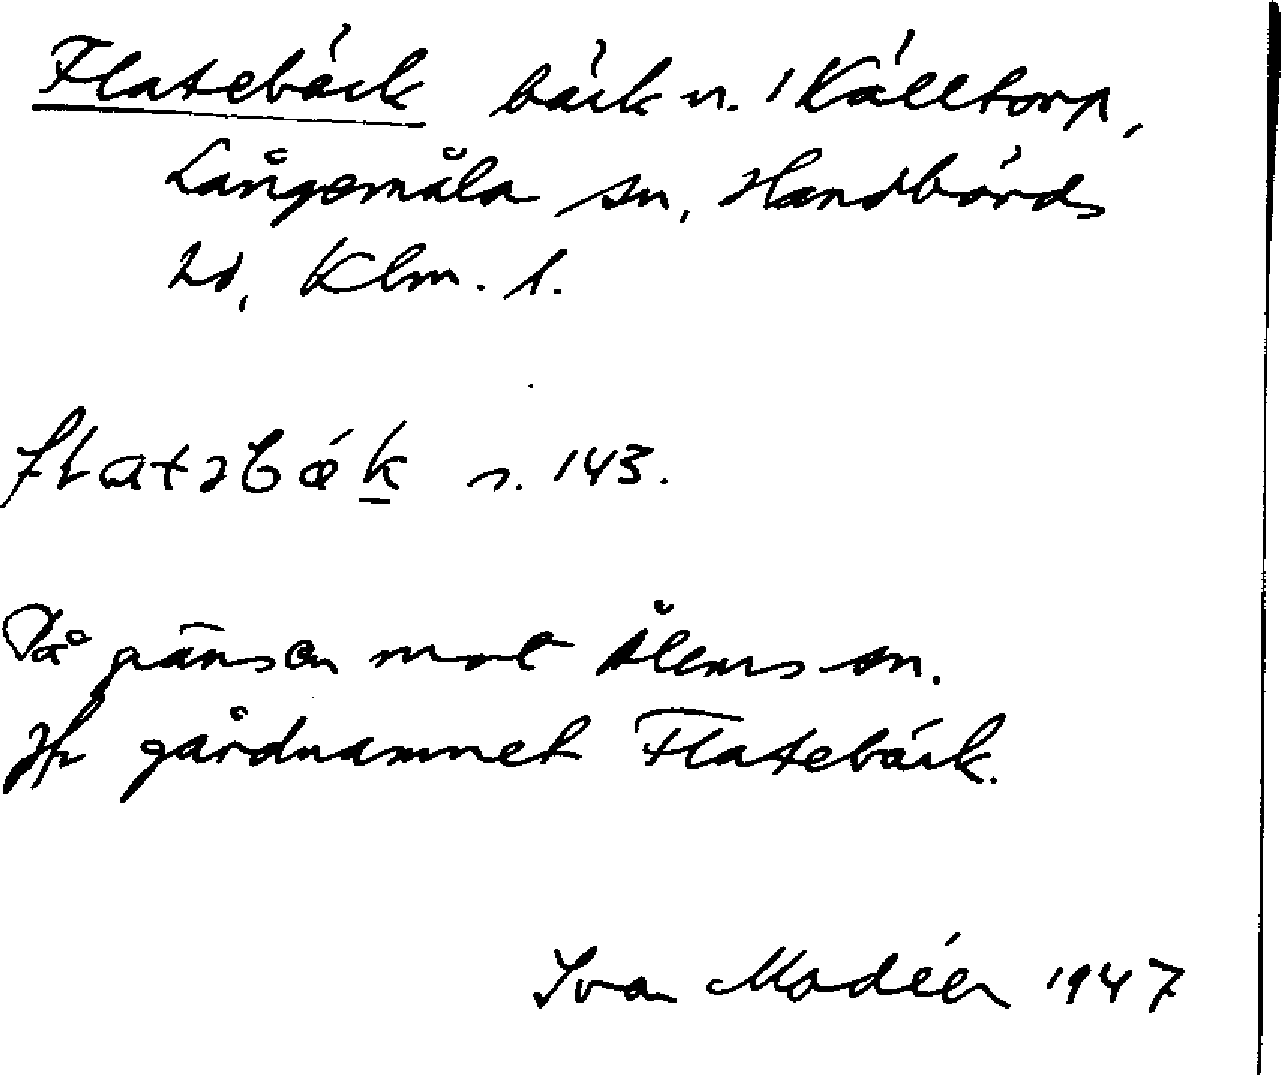 Flatebäck bäck n. 1 Källtorp,
Långemåla sn, Handbörds
hd, Klm. l.
flatəbǽk s. 143.
På gränsen mot Ålems sn.
Jfr gårdnamnet Flatebäck.
Ivar Modéer 1947